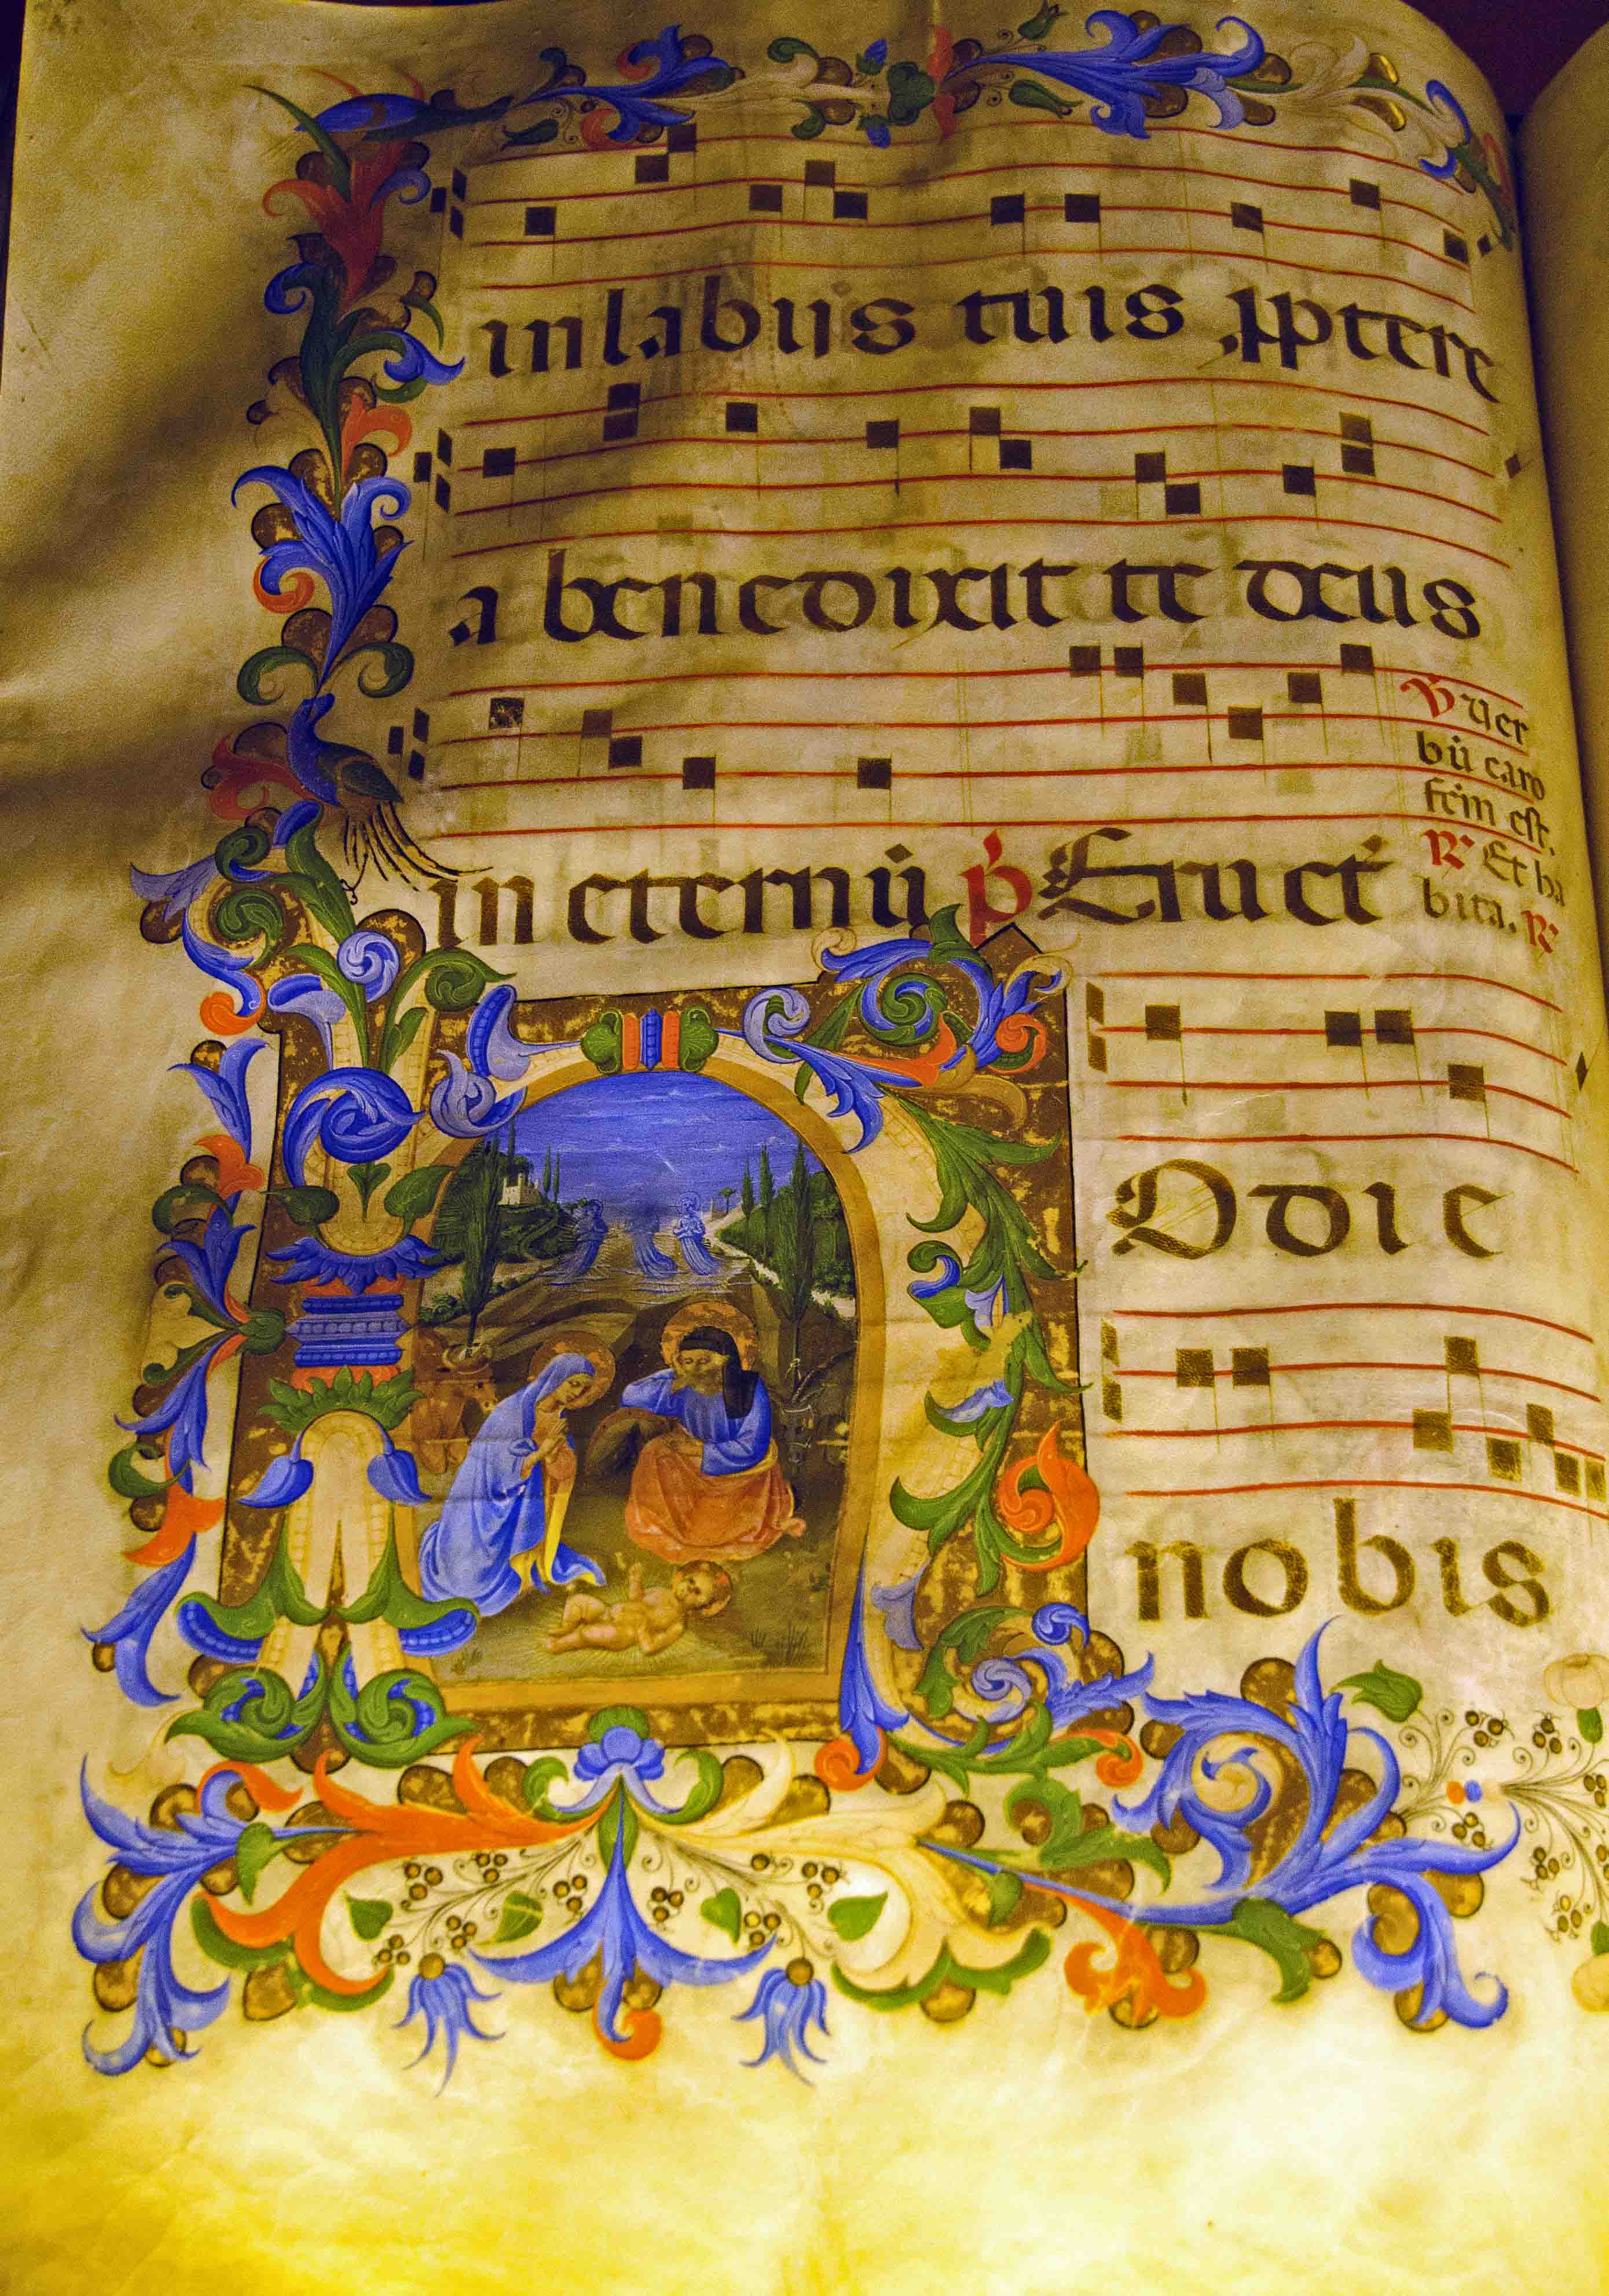 in labiis tuis ꝓptere
a benedixit te deus
in eternū p̄ Eruct̄
℣ Ver
bū caro
fc̄m est.
℟ Et ha
bita. ℟
H
Odie
nobis